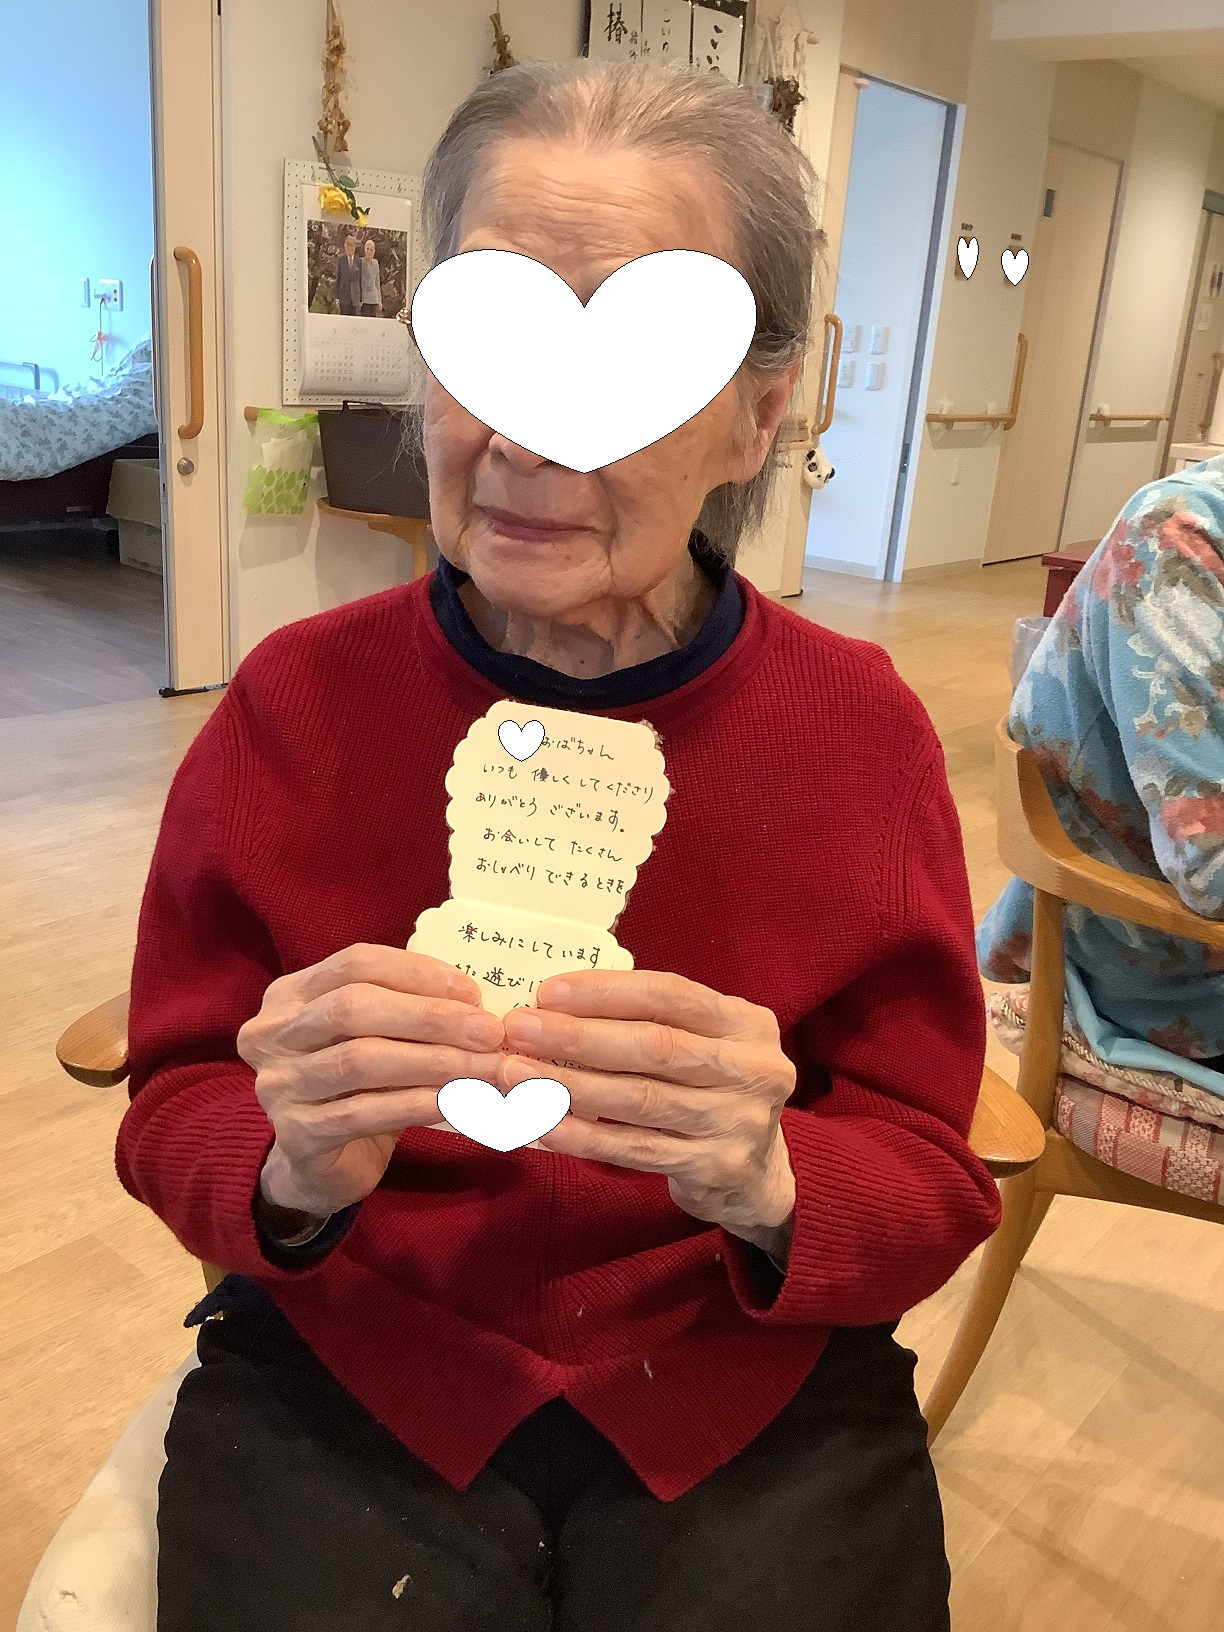 椿
おばちゃん
いつも 優しくしてくださり
ありがとう ございます。
お会いして たくさん
おしゃべり できるときを
楽しみにしています
また 遊びに
3
4